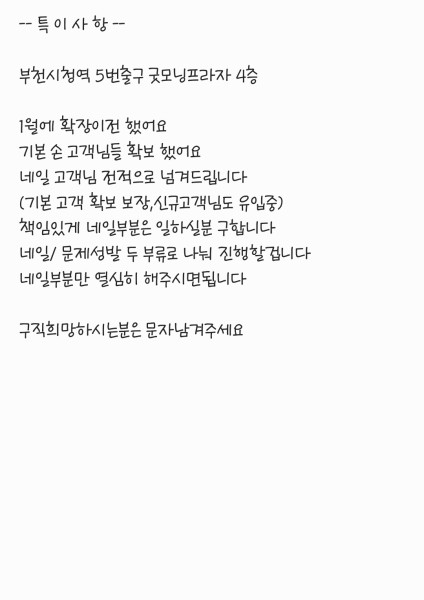 -- 특 이 사 항 --
부천시청역 5번출구 굿모닝프라자 4층
1월에 확장이전 했어요
기본 손 고객님들 확보 했어요
네일 고객님 전적으로 넘겨드립니다
(기본 고객 확보 보장,신규고객님도 유입중)
책임있게 네일부분은 일하실분 구합니다
네일/ 문제성발 두 부류로 나눠 진행할겁니다
네일부분만 열심히 해주시면됩니다
구직희망하시는분은 문자남겨주세요